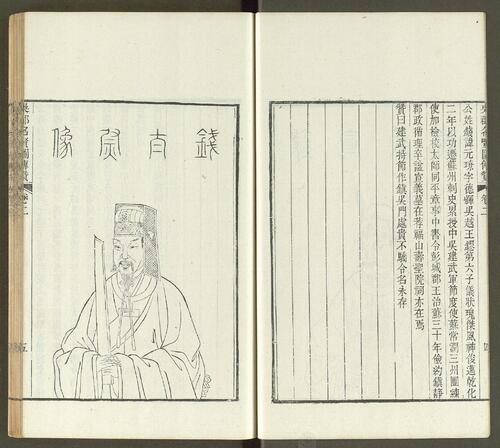 吳郡名賢圖傳贊 卷二
四
公姓錢諱元璙字德輝吳越王鏐第六子儀狀瑰傑風神俊邁乾化
二年以功遷蘇州刺史累授中吳建武軍節度使蘇常潤三州團練
使加檢校太師同平章事中書令彭城郡王治蘇三十年儉約鎮靜
郡政循理卒諡宣義墓在菩福山壽聖院祠亦在焉
贊曰建武持節作鎮吳門處貴不驕令名永存
錢太尉像
吳郡名賢圖傳贊 卷二
五